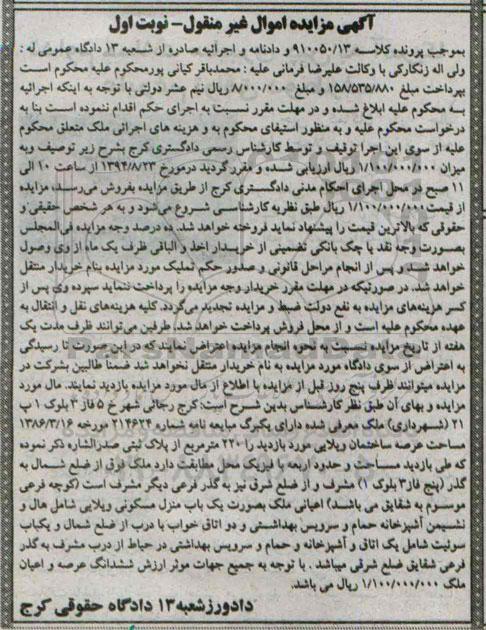 آگهی مزایده اموال غیر منقول- نوبت اول
بموجب پرونده کلاسه ۹۱۰۰۵۰/۱۳ و دادنامه و اجرائیه صادره از شعبه ۱۳ دادگاه عمومی له :
ولی اله زنگارکی با وکالت علیرضا فرمانی علیه : محمدباقر کیانی پورمحکوم علیه محکوم است
بپرداخت مبلغ ۱۵۸/۵۳۵/۸۸۰ و مبلغ ۸/۰۰۰/۰۰۰ ریال نیم عشر دولتی با توجه به اینکه اجرائیه
به محکوم علیه ابلاغ شده و در مهلت مقرر نسبت به اجرای حکم اقدام ننموده است بنا به
درخواست محکوم علیه و به منظور استیفای محکوم به و هزینه های اجرائی ملک متعلق محکوم
علیه از سوی این اجرا توقیف و توسط کارشناس رسمی دادگستری کرج بشرح زیر توصیف وبه
میزان ۱/۱۰۰/۰۰۰/۰۰۰ ریال ارزیابی شده و مقرر گردید درمورخ ۱۳۹۴/۸/۲۳ از ساعت ۱۰ الی
۱۱ صبح در محل اجرای احکام مدنی دادگستری کرج از طریق مزایده بفروش می‌رسد، مزایده
از قیمت ۱/۱۰۰/۰۰۰/۰۰۰ ریال طبق نظریه کارشناسی شروع می‌شود و به هر شخص حقیقی و
حقوقی که بالاترین قیمت را پیشنهاد نماید فروخته خواهد شد. ده درصد وجه مزایده فی‌المجلس
بصورت وجه نقد یا چک بانکی تضمینی از خریدار اخذ و الباقی ظرف یک ماه از وی وصول
خواهد شد و پس از انجام مراحل قانونی و صدور حکم تملیک مورد مزایده بنام خریدار منتقل
خواهد شد. در صورتیکه در مهلت مقرر خریدار وجه مزایده را پرداخت ننماید سپرده وی پس از
کسر هزینه‌های مزایده به نفع دولت ضبط و مزایده تجدید می‌گردد. کلیه هزینه‌های نقل و انتقال به
عهده محکوم علیه است و از محل فروش پرداخت خواهد شد. طرفین می‌توانند ظرف مدت یک
هفته از تاریخ مزایده نسبت به نحوه انجام مزایده اعتراض نمایند که در این صورت تا رسیدگی
به اعتراض از سوی دادگاه مورد مزایده به نام خریدار منتقل نخواهد شد ضمنا طالبین بشرکت در
مزایده میتوانند ظرف پنج روز قبل از مزایده با اطلاع از مال مورد مزایده بازدید نمایند. مال مورد
مزایده و بهای آن طبق نظر کارشناس بدین شرح است: کرج رجائی شهر خ ۵ فاز ۳ بلوک ۱ پ
۲۱ (شهرداری) ملک معرفی شده دارای یکبرگ مبایعه نامه شماره ۲۱۴۶۲۴ مورخه ۱۳۸۶/۳/۱۶
مساحت عرصه ساختمان ویلایی مورد بازدید را ۲۲۰ مترمربع از پلاک ثبتی صدرالشاره ذکر نموده
که طی بازدید مساحت و حدود اربعه با فیزیک محل مطابقت دارد ملک فوق از ضلع شمال به
گذر (پنج فاز۳ بلوک ۱) مشرف و از ضلع شرق نیز به گذر فرعی دیگر مشرف است (کوچه فرعی
موسوم به شقایق می باشد) اعیانی ملک بصورت یک باب منزل مسکونی ویلایی شامل هال و
نشیمن آشپزخانه حمام و سرویس بهداشتی و دو اتاق خواب با درب از ضلع شمال و یکباب
سوئیت شامل یک اتاق و آشپزخانه و حمام و سرویس بهداشتی در حیاط از درب مشرف به گذر
فرعی شقایق ضلع شرقی میباشد . با توجه به جمیع جهات موثر ارزش ششدانگ عرصه و اعیان
ملک ۱/۱۰۰/۰۰۰/۰۰۰ ریال می باشد.
دادورزشعبه۱۳ دادگاه حقوقی کرج
ParsNamadData